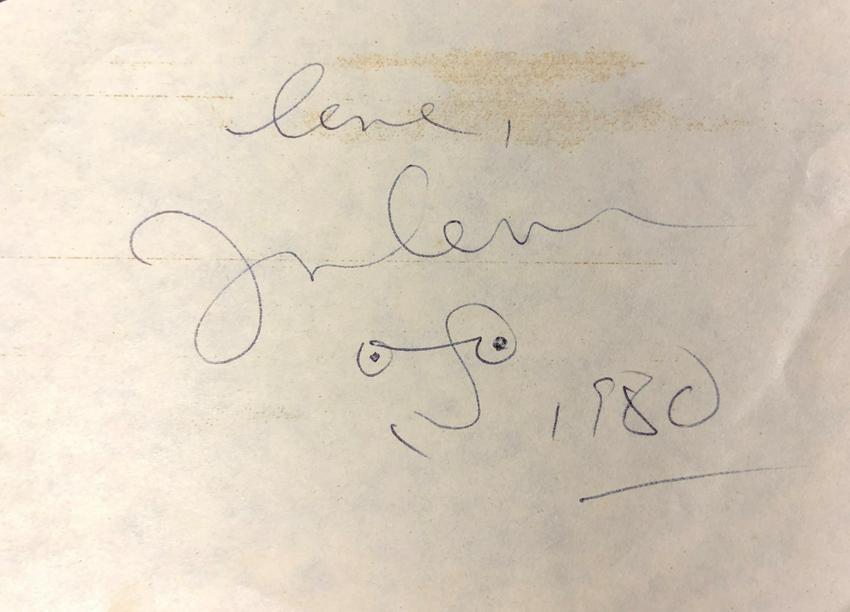 love,
John Lennon
1980